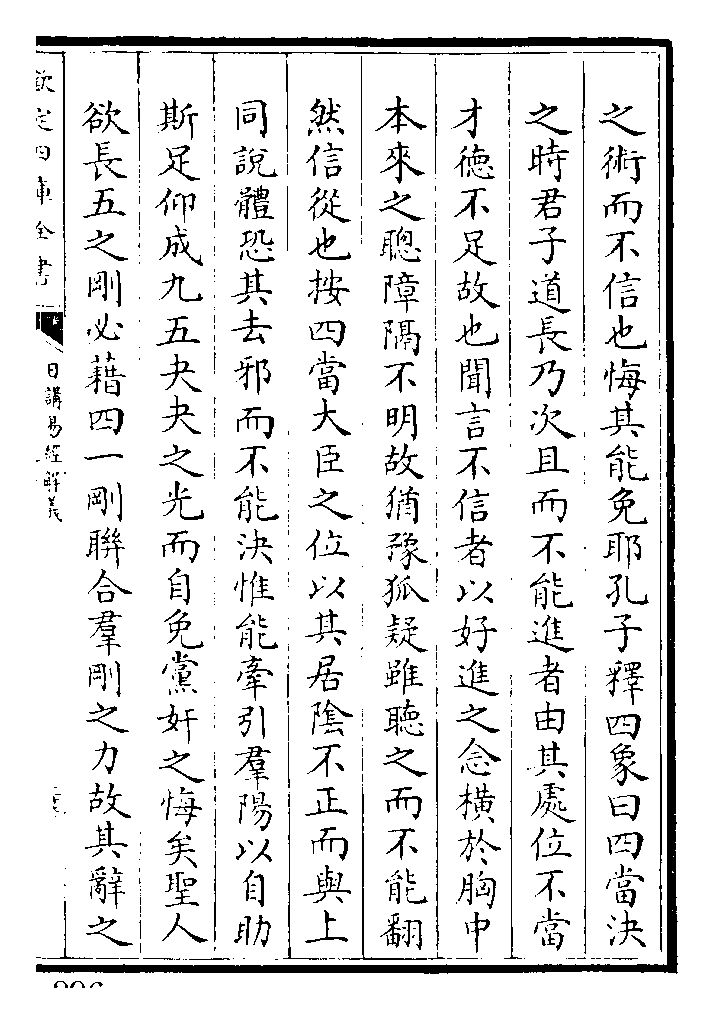 之術而不信也悔其能免耶孔子釋四象曰四當決
之時君子道長乃次且而不能進者由其處位不當
才德不足故也聞言不信者以好進之念橫於胸中
本來之聰障隔不明故猶豫狐疑雖聽之而不能翻
然信從也按四當大臣之位以其居隂不正而與上
同說體恐其去邪而不能決惟能牽引羣陽以自助
斯足仰成九五夬夬之光而自免黨奸之悔矣聖人
欲長五之剛必藉四一剛聯合羣剛之力故其辭之
欽定四庫全書
日講易經解義